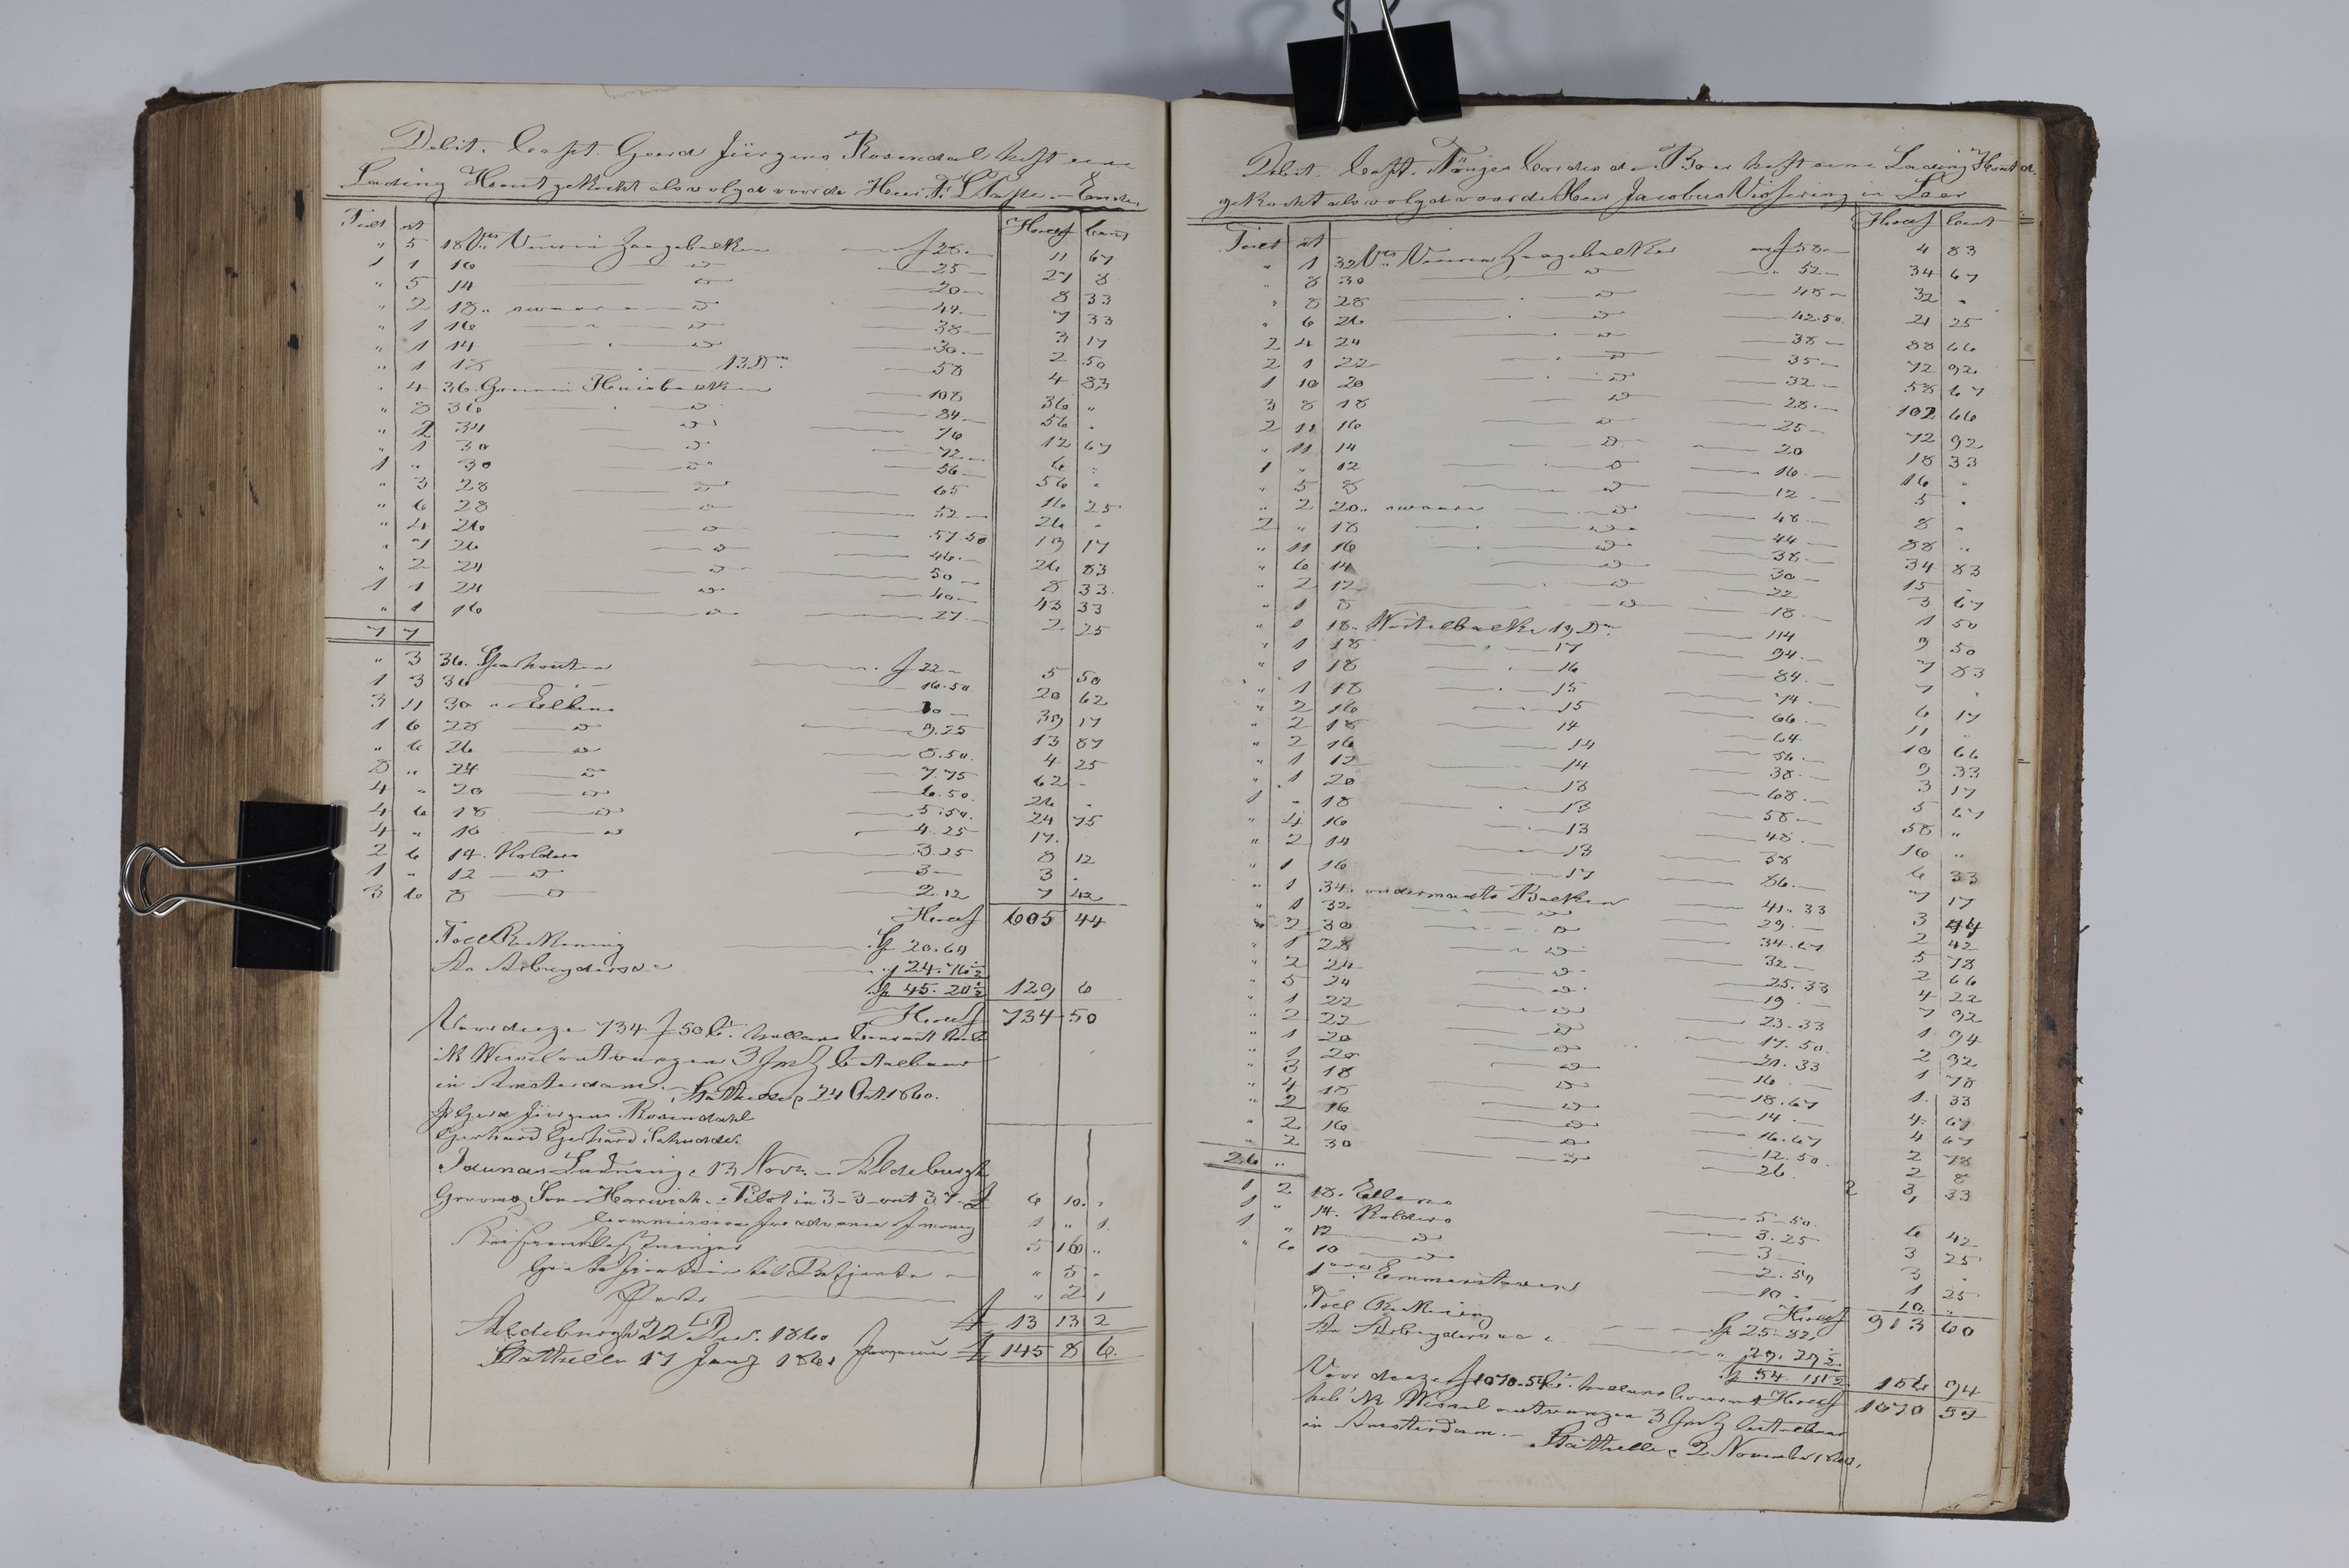 Debit. Capt. Geerd Jürgens Rosendal heft eene
Lading Hout gekocht als volgd voor de Heer. Emden
Tult st Holl f Cent
" 5 18 Vt Vuuren Zaagebalken f 28.— 11 67
1 1 16 do 25— 27 8
" 5 14 do 20— 8 33
" 2 18 " swaare do 44— 7 33
" 1 16 " do 38— 3 17
" 1 14 " do 30— 2 50
" 1 18 13 Dm 58 4 83
" 4 36 Greenen Huisbalken 108 36 "
" 8 36 do 84— 56 "
" 2 34 do 76 12 67
" 1 30 do 72— 6 "
1 " 30 do 56— 56 "
" 3 28 do 65 16 25
" 6 28 do 52— 26 "
" 4 26 do 57.50 19 17
" 7 26 do 46— 26 83
" 2 24 do 50— 8 33
1 1 24 do 40— 43 33
" 1 16 do 27— 2 25
7 7
" 3 36. f 22— 5 50
1 3 36 16.50 20 62
3 11 30 " Ellens 10— 39 17
1 6 28 do 9.25 13 87
" 6 26 do 8.50. 4 25
8 " 24 do 7.75 62 "
4 " 20 do 6.50. 26 "
4 6 18 do 5.50. 24 75
4 " 16 do 4.25 17.
2 6 14. Kolders 3.25 8 12
1 " 12 do 3— 3 "
3 6 8 do 2.12 7 42
Holl f 605 44
Toll Rekening Sp 20.60
An Arbeyders 24.76½
Sp 45.20½ 129 6
Holl f 734 50
Voor deeze 734 f 50 Ct. hollans Courant heb
ik Wissel ontvangen 3 betaelbaar
in Amsterdam. — Stathelle, 24 Oct 1860.
Geerd Jürgens Rosendahl
Gerhard Gerhard
13 Novr. — Aldeburgh
Grooms Son — Harwich. Pilot in 3-3 out 3.7 £ 6 10. "
Commission for advance of money 1 " 1.
5 16 "
" 5 "
Porto " 2 1
£ 13 13 2
Aldeburgh 22 Dec. 1860
Stathelle 17 Janj 1861 £ 145 8 6.
Debit. Capt. Tönjes Cordes de Boer heft eene Lading Hout
gekocht als volgd voor de Heer Jacobus Vissering in Leer
Tult st Holl f Cent
" 1 32 Vt Vuuren Zaagebalken f 58— 4 83
" 8 30 do 52— 34 67
" 8 28 do 48— 32 "
" 6 26 do 42.50 21 25
2 4 24 do 38— 88 66
2 1 22 do 35— 72 92
1 10 20 do 32— 58 67
3 8 18 do 28— 102 66
2 11 16 do 25— 72 92
" 11 14 do 20 18 33
1 " 12 do 16— 16 "
" 5 8 do 12— 5 "
" 2 20 " swaare do 48— 8 "
2 " 18 do 44— 88 "
" 11 16 do 38— 34 83
" 6 14 do 30— 15 "
" 2 12 do 22— 3 67
" 1 8 do 18— 1 50
" 1 18 " 19 Dm 114 9 50
" 1 18 17 94— 7 83
" 1 18 16 84— 7 "
" 1 18 15 74— 6 17
" 2 16 15 66— 11 "
" 2 18 14 64 10 66
" 2 16 14 56— 9 33
" 1 12 14 38— 3 17
" 1 20 13 68— 5 67
1 " 18 13 58— 58 "
" 4 16 13 48— 16 "
" 2 14 13 38 6 33
" 1 16 17 86— 7 17
" 1 34 " ondermaats Balken 41.33 3 44
" 1 32 do 29— 2 42
" 2 30 do 34.67 5 78
" 1 28 do 32— 2 66
" 2 24 do 25.33 4 22
" 5 24 do 19— 7 92
" 1 22 do 23.33 1 94
" 2 22 do 17.50. 2 92
" 1 20 do 21.33 1 78
" 1 20 do 16— 1 33
" 3 18 do 18.67 4 67
" 4 18 do 14— 4 67
" 2 16 do 16.67 2 78
" 2 16 do 12.50. 2 8
" 2 30 do 26
26 "
1 2 18. Ellens 5.50. 6 42
1 " 14. Kolders 3.25 3 25
1 " 12 do 3— 3 "
" 6 10 do 2.50 1 25
10 — 10. "
Holl f 913 60
Toll Rekening Sp 25.82
An Arbeyders 29.29½
Sp 54.11½ 156 94
Voor deeze f 1070.54 Ct. hollans Courant Holl f 1070 54
heb ik Wissel ontvangen 3 betaelbaar
in Amsterdam. — Stathelle, 2 November 1860.